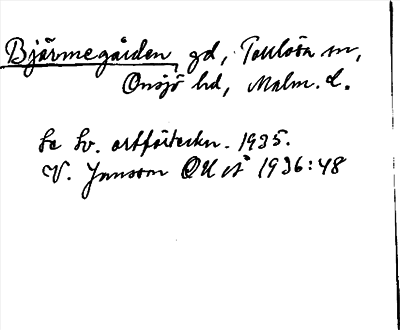 Bjärmegården, gd, Tollösa sn,
Onsjö hd, Malm. l.
Se Sv. ortförteckn. 1935.
V. Jansson OUÅ 1936:48